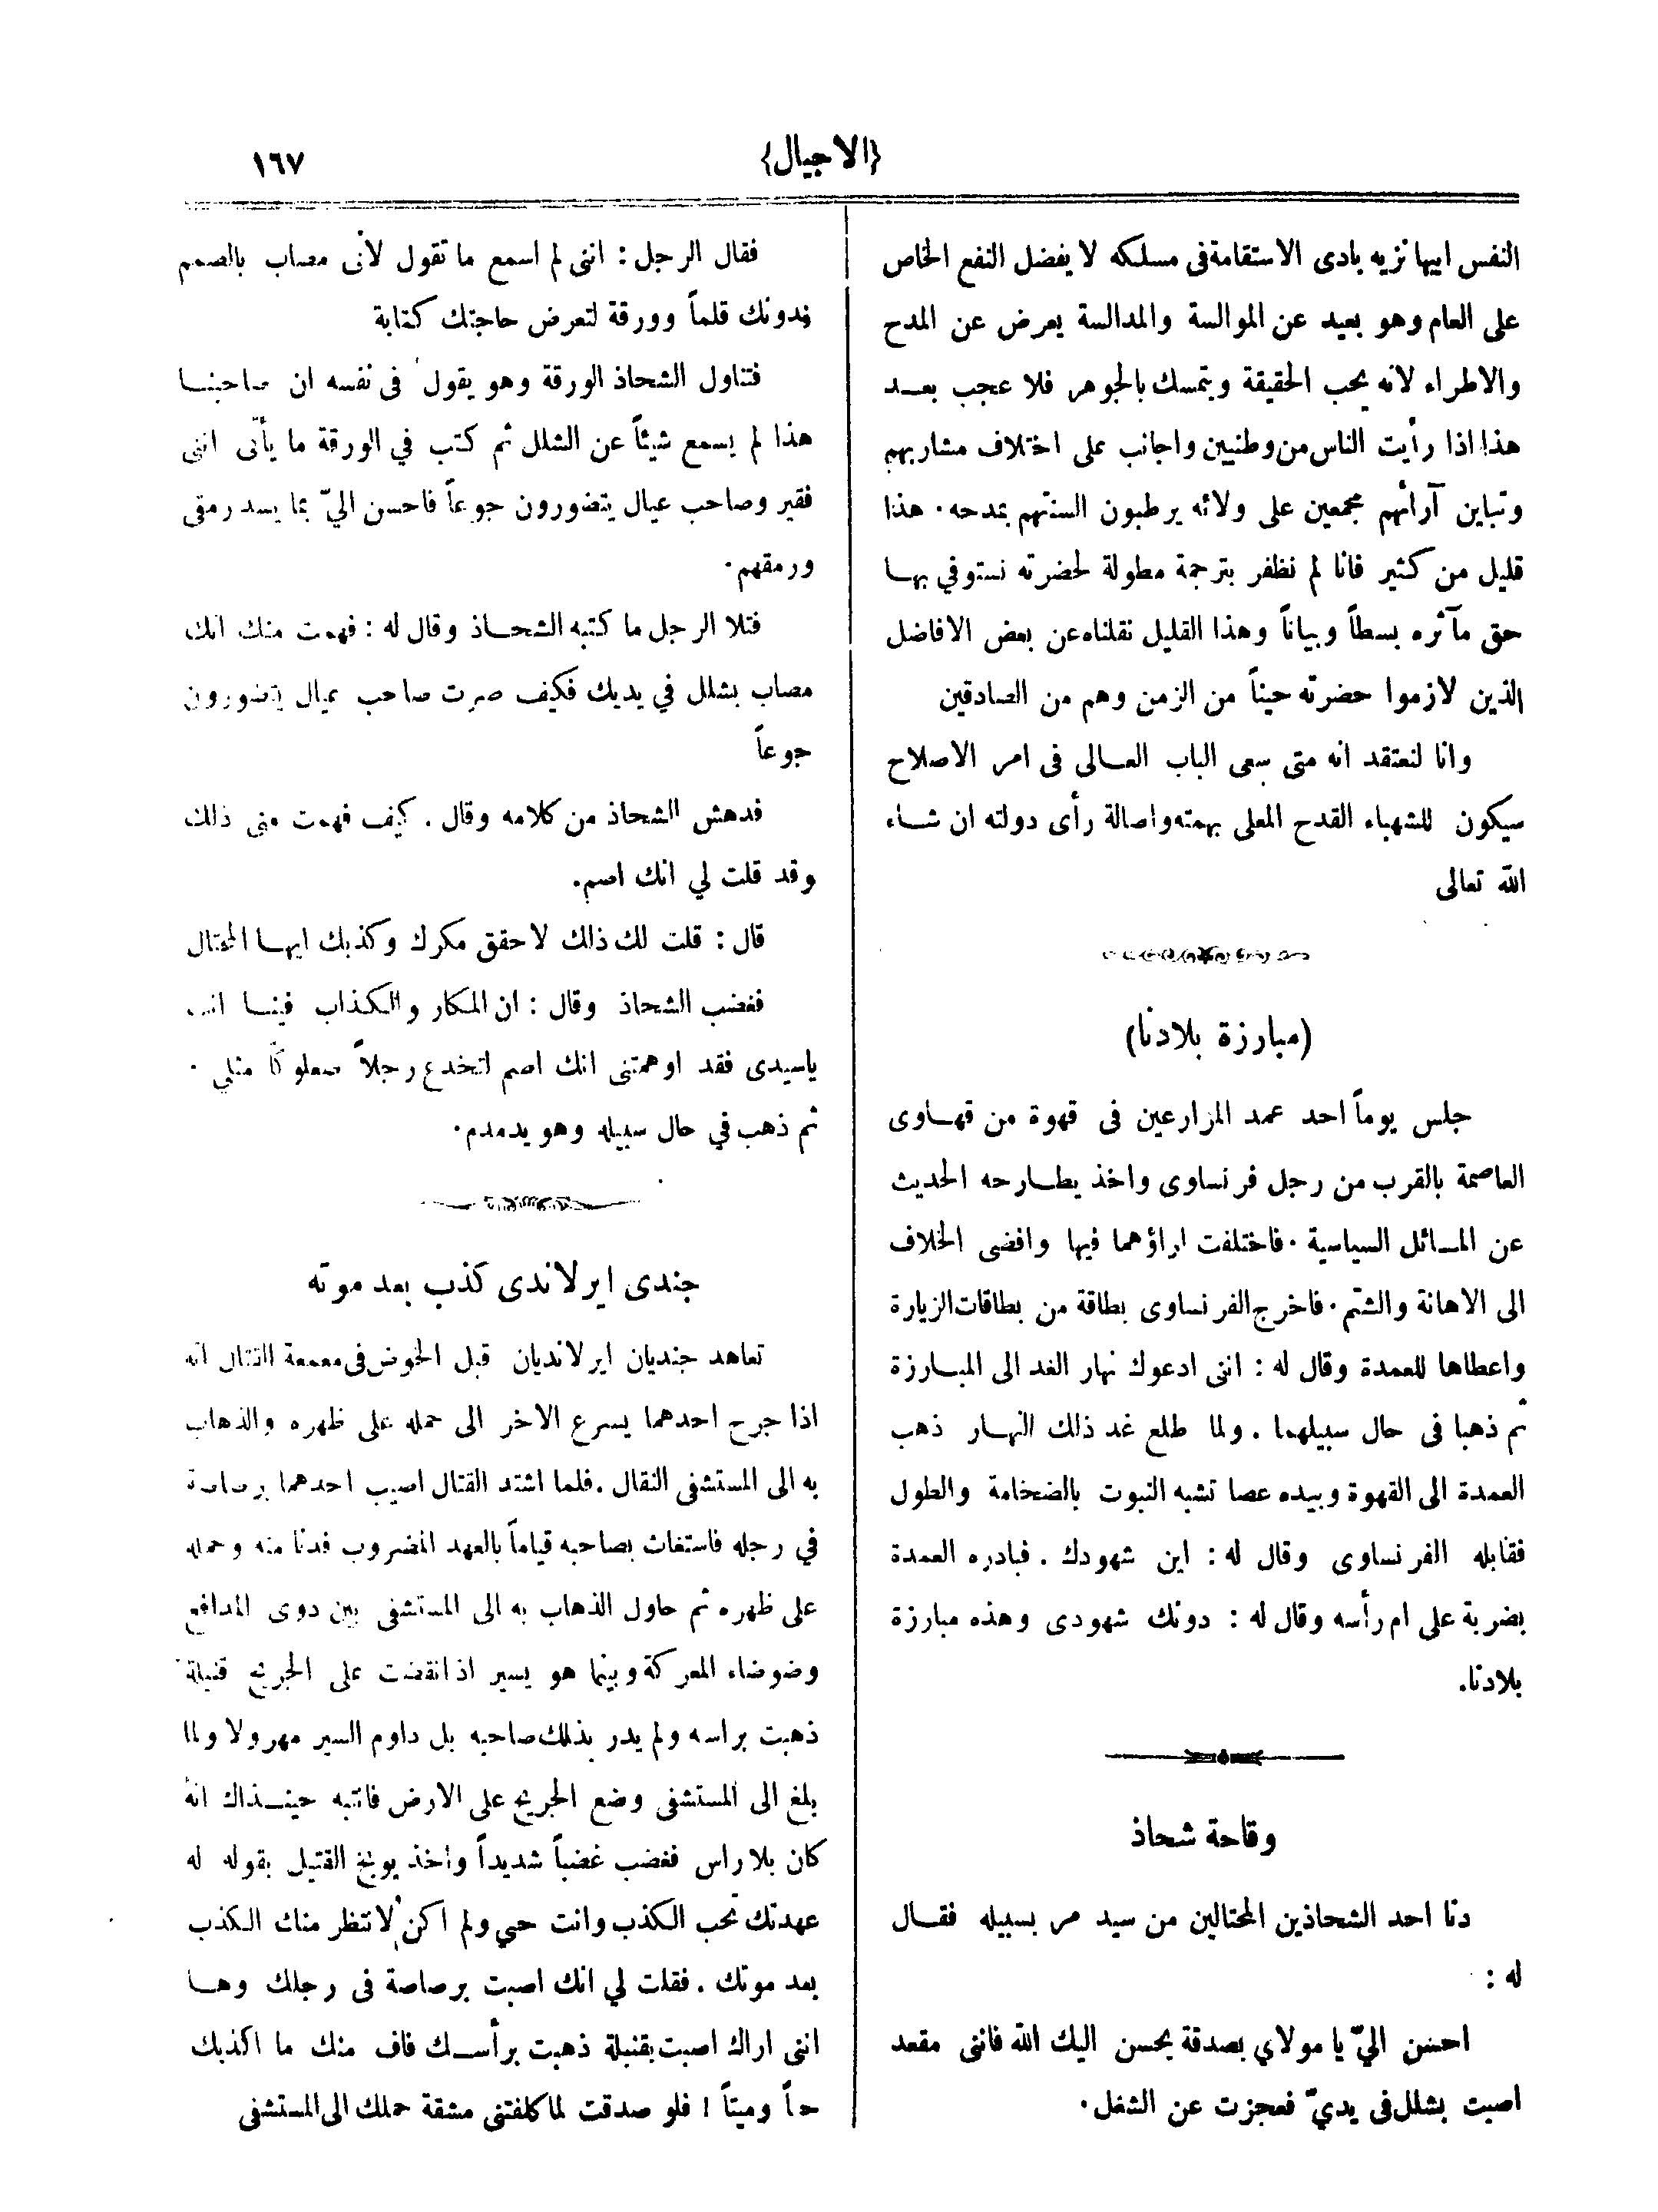 {الاجيال}
١٦٧
النفس ابيها نزيه بادى الاستقامة فى مسلكه لا يفضل النفع الخاص
على العام وهو بعيد عن الموالسة والمدالسة يعرض عن المدح
والاطراء لانه يحب الحقيقة ويتمسك بالجوهر فلا عجب بعد
هذا اذا رأيت الناس من وطنيين واجانب على اختلاف مشاربهم
وتباين آرائهم مجمعين على ولائه يرطبون السنتهم بمدحه. هذا
قليل من كثير فانا لم نظفر بترجمة مطولة لحضرته نستوفي بها
حق مآثره بسطاً وبياناً وهذا القليل نقلناه عن بعض الافاضل
الذين لازموا حضرته حيناً من الزمن وهم من الصادقين
وانا لنعتقد انه متى سعى الباب العالى فى امر الاصلاح
سيكون للشهباء القدح المعلى بهمته واصالة رأى دولته ان شاء
الله تعالى
(مبارزة بلادنا)
جلس يوماً احد عمد المزارعين فى قهوة من قهاوى
العاصمة بالقرب من رجل فرنساوى واخذ يطارحه الحديث
عن المسائل السياسية. فاختلفت اراؤهما فيها وافضى الخلاف
الى الاهانة والشتم. فاخرج الفرنساوى بطاقة من بطاقات الزيارة
واعطاها للعمدة وقال له : اننى ادعوك نهار الغد الى المبارزة
ثم ذهبا فى حال سبيلهما. ولما طلع غد ذلك النهار ذهب
العمدة الى القهوة وبيده عصا تشبه النبوت بالضخامة والطول
فقابله الفرنساوى وقال له : اين شهودك. فبادره العمدة
بضربة على ام رأسه وقال له : دونك شهودى وهذه مبارزة
بلادنا.
وقاحة شحاذ
دنا احد الشحاذين المحتالين من سيد مر بسبيله فقال
له :
احسن اليّ يا مولاي بصدقة يحسن اليك الله فاننى مقعد
اصبت بشلل فى يديّ فعجزت عن الشغل.
فقال الرجل : اننى لم اسمع ما تقول لأنى مصاب بالصمم
فدونك قلماً وورقة لتعرض حاجتك كتابة
فتناول الشحاذ الورقة وهو يقول فى نفسه ان صاحبنا
هذا لم يسمع شيئاً عن الشلل ثم كتب في الورقة ما يأتى اننى
فقير وصاحب عيال يتضورون جوعاً فاحسن اليّ بما يسد رمقى
ورمقهم.
فتلا الرجل ما كتبه الشحاذ وقال له : فهمت منك انك
مصاب بشلل في يديك فكيف صرت صاحب عيال يتضورون
جوعاً
فدهش الشحاذ من كلامه وقال. كيف فهمت منى ذلك
وقد قلت لي انك اصم.
قال : قلت لك ذلك لاحقق مكرك وكذبك ايها المحتال
فغضب الشحاذ وقال : ان المكار والكذاب فينا انت
ياسيدى فقد اوهمتنى انك اصم لتخدع رجلاً صعلوكاً مثلي.
ثم ذهب في حال سبيله وهو يدمدم.
جندى ايرلاندى كذب بعد موته
تعاهد جنديان ايرلانديان قبل الخوض فى معمعة القتال انه
اذا جرح احدهما يسرع الاخر الى حمله على ظهره والذهاب
به الى المستشفى النقال. فلما اشتد القتال اصيب احدهما برصاصة
في رجله فاستغاث بصاحبه قياماً بالعهد المضروب فدنا منه وحمله
على ظهره ثم حاول الذهاب به الى المستشفى بين دوى المدافع
وضوضاء المعركة وبينما هو يسير اذ انقضت على الجريح قنبلة
ذهبت براسه ولم يدر بذلك صاحبه بل داوم السير مهرولا ولما
بلغ الى المستشفى وضع الجريح على الارض فانتبه حينذاك انه
كان بلا راس فغضب غضباً شديداً واخذ يوبخ القتيل بقوله له
عهدتك تحب الكذب وانت حي ولم اكن لانتظر منك الكذب
بعد موتك. فقلت لي انك اصبت برصاصة فى رجلك وها
اننى اراك اصبت بقنبلة ذهبت برأسك فاف منك ما اكذبك
حياً وميتاً ! فلو صدقت لما كلفتنى مشقة حملك الى المستشفى